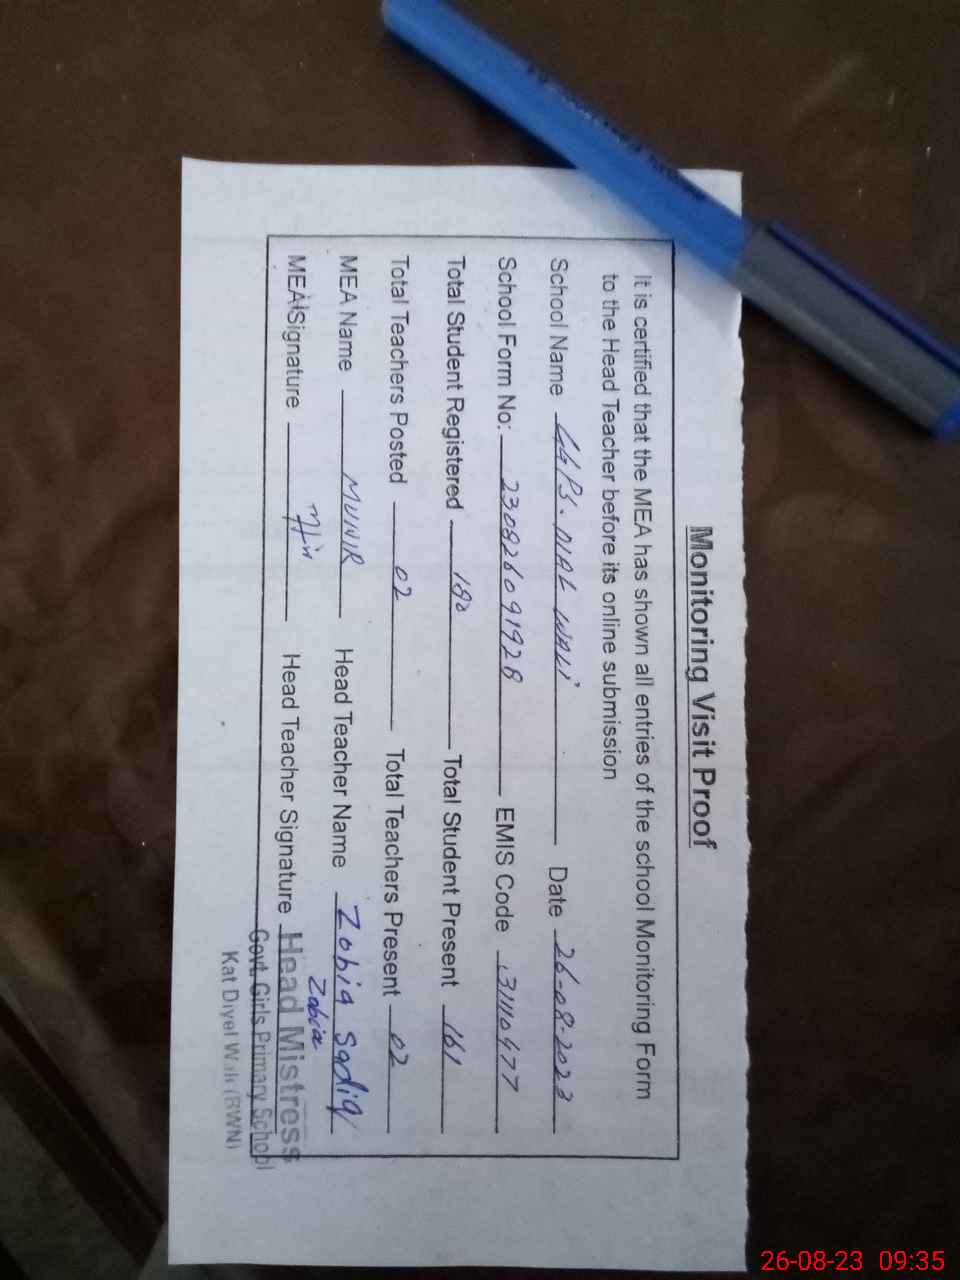 Monitoring Visit Proof
It is certified that the MEA has shown all entries of the school Monitoring Form
to the Head Teacher before its online submission
School Name GGPS. DIAL WALI Date 26-08-2023
School Form No: 230826091928 EMIS Code 31110477
Total Student Registered 180 Total Student Present 161
Total Teachers Posted 02 Total Teachers Present 02
MEA Name MUNIR Head Teacher Name Zobia Sadiq
MEA Signature Head Teacher Signature Zobia
Head Mistress
Govt. Girls Primary School
Kat Diyel Wali (BWN)
26-08-23 09:35